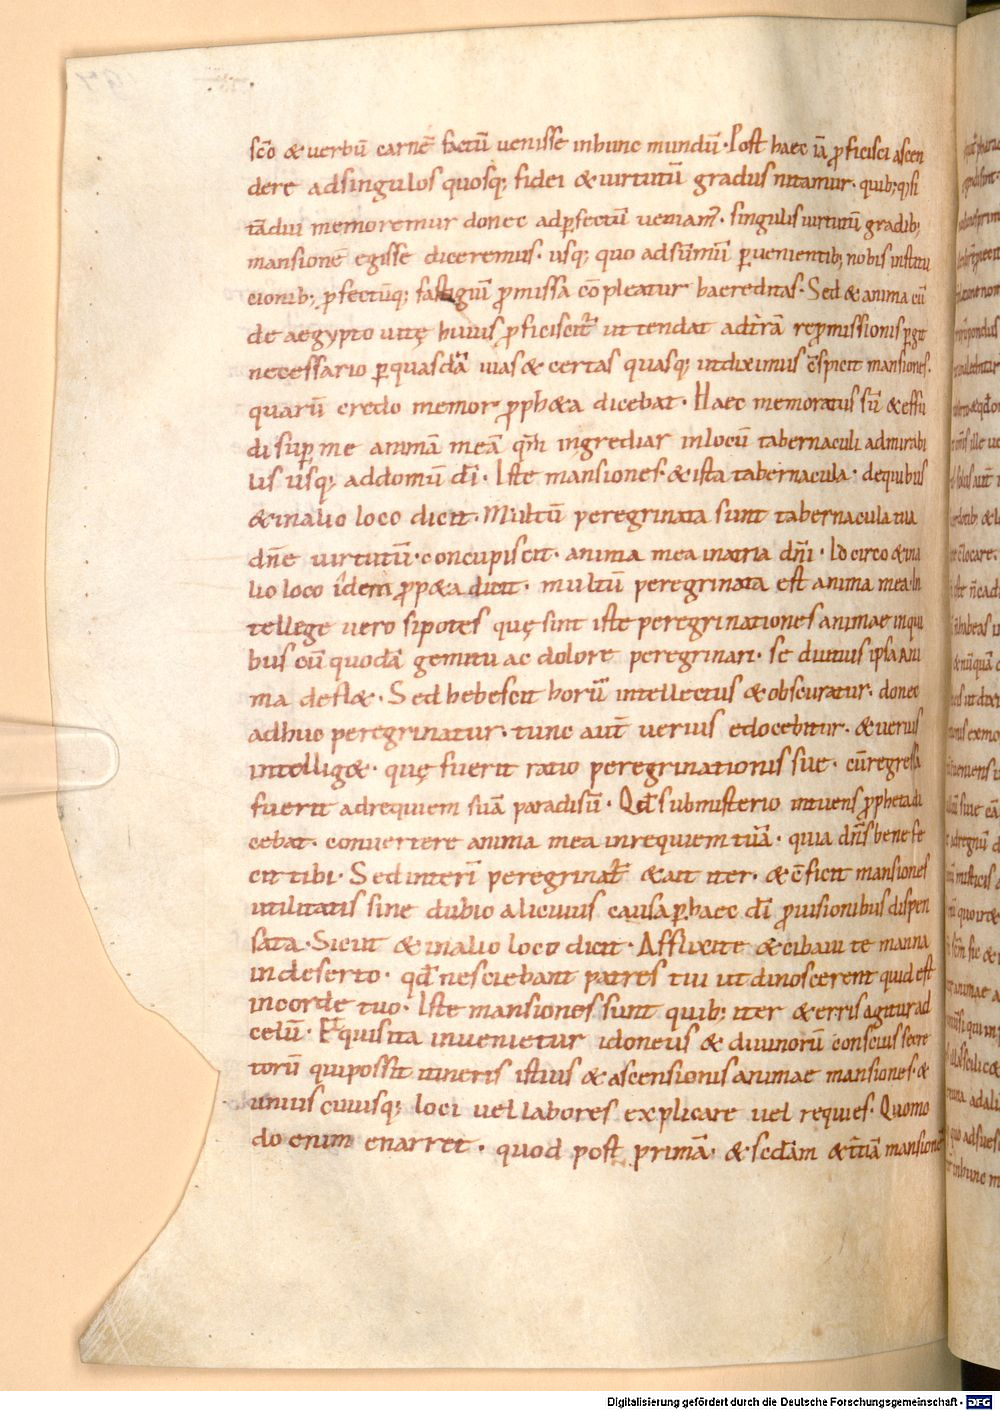 sc̄o & uerbū carnē factū uenisse inhunc mundū · Post haec iā ꝓficisci ascen
dere adsingulos quosq; fidei & uirtutū gradus nitamur · quib; q;si
tādiu memoremur donec adꝑfectū ueniam᷒ · singulis uirtutū gradib;
mansionē egisse diceremus · usq; quo adsūmū ꝑuenientib; nobis institu
cionib; ꝓfectūq; fastigiū ꝓmissa cōpleatur haereditas · Sed & anima cū
de aegypto uitę huius ꝓficiscit᷑ ut tendat adt̄rā repromissionis ꝑgit
necessario ꝑquasdā uias & certas quasq; utdiximus c̄spicit mansiones ·
quarū credo memor ꝓph&a dicebat · Haec memoratus sū & effu
di suꝑ me animā meā qm̄ ingrediar inlocū tabernaculi admirabi
lis usq; addomū dī · Iste mansiones · & ista tabernacula · dequibus
& inalio loco dicit · Multū peregrinata sunt tabernacula tua
dn̄e uirtutū · concupiscit · anima mea inatria dn̄i · Idcirco & ina
lio loco idem ꝓp&a dicit · multū peregrinata est anima mea · In
tellege uero sipotes quę sint iste peregrinationes animae inqui
bus cū quodā gemitu ac dolore peregrinari · se diutius ipsa Ani
ma defl& · Sed hebescit horū intellectus & obscuratur · donec
adhuc peregrinatur · tunc aut̄ uerius edocebitur · & uerius
intellig& · quę fuerit ratio peregrinationis sue · cū regressa
fuerit adrequiem suā paradisū · Qd̄ submisterio intuens ꝓpheta di
cebat · conuertere anima mea inrequiem tuā · quia dn̄s bene fe
cit tibi · Sed interī peregrinat᷑ & ait iter · & c̄ficit mansiones
utilitatis sine dubio alicuius causa ꝑhaec dī ꝓuisionibus dispen
sata · Sicut & inalio loco dicit · Afflixite & cibaui te manna
in deserto · qd̄ nesciebant patres tui ut dinoscerent quid est
incorde tuo · Iste mansiones sunt quib; iter & erris agitur ad
celū · Et quis ita inuenietur idoneus & diuinorū conscius secre
torū quipossit itineris istius & ascensionis animae mansiones · &
unius cuiusq; loci uel labores explicare uel requies · Quomo
do enim enarret · quod post primā · & secd̄am & t̄tiā mansionē
Digitalisierung gefördert durch die Deutsche Forschungsgemeinschaft - DFG